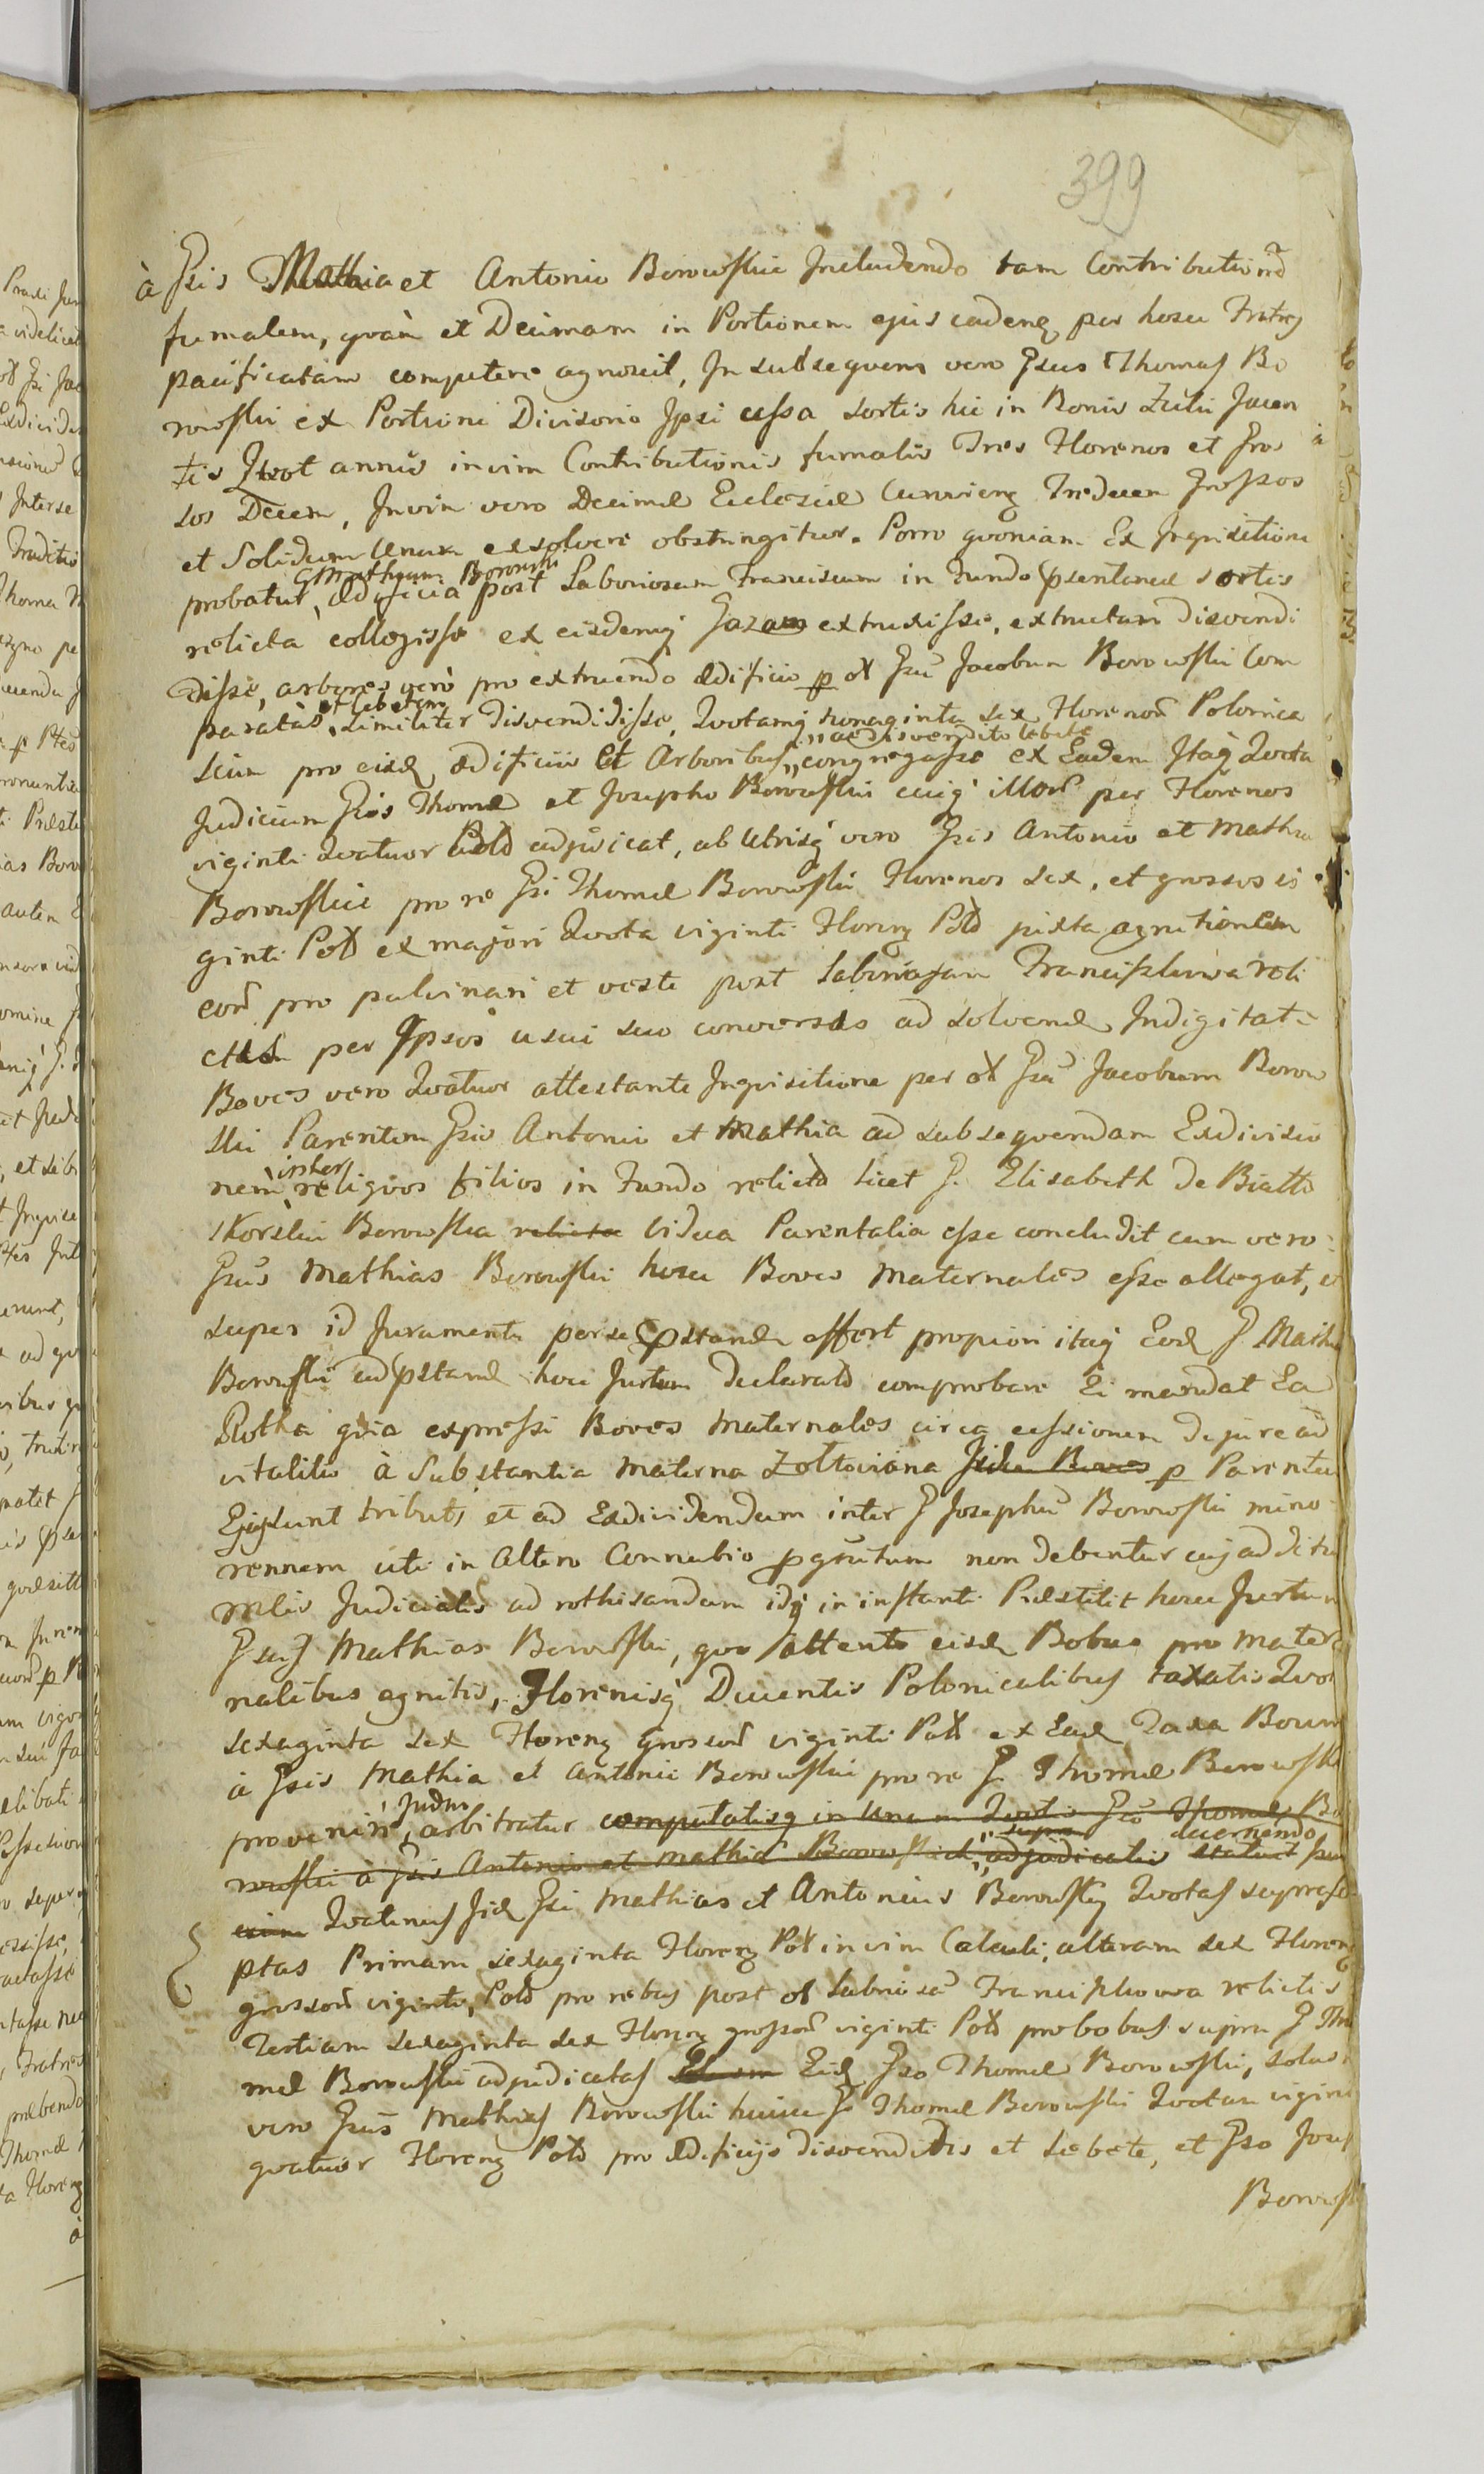 399
à Gsis Mathia et Antonio Borowskie Includendo tam Contributionẽ
fumalem, quàm et Decimam in Portionem ejus cadenẽ per hosce Fratres
pacificatam competere agnoscit, In subsequens vero Gsus Thomas Bo
rowski ex Portione Divisoria Ipsi cessa sortis hic in Bonis Jacen
tis Quot annis in vim Contributionis fumalis Tres Florenos et Gros
sos Decem, In vim vero Decimæ Ecclesiæ Tredecem Grossos
et Solidum Unum exsolvere obstringitur. Porro quoniam Ex Inquisitione
G Mathiam Borowski
probatur, ædificia post Laboriosum Franciscum in Fundo psentaneæ sortis
relicta collegisse ex eisdemq extruxisse, extructam disvendi
disse, arbores verò pro extruendo ædificio p ol Gsũ Jacobum Borowski Com
et lebetem
paratas, similiter disvendidisse, Quotamq nonaginta sex Florenorũ Polonica
ac disvendito lebete
lium pro eisd ædificiis et Arboribus congregasse ex Eadem Itaq Quota
Judicium Gsis Thomæ et Josepho Borowskie cuiq illorũ per Florenos
viginti quatuor Polo adjudicat, ab Utrisq vero Gsis Antonio et Mathia
Borowskie pro re Gsi Thomæ Borowski Florenos sex, et grossos vi
ginti Pold ex majori Quota viginti Florenẽ Pold juxta agnitionem
eorũ pro pulvinari et veste post Laboriosam Franciszkowa reli
ctis per Ipsos usui suo conversas ad solvend Indigitat.
Boves vero Quatuor attestante Inquisitione per ol Gsũ Jacobum Borow
ski Parentem Gsis Antonii et Mathia ad subsequendam Exdivisio
inter
nem reliquos filios in Fundo relictos licet G. Elisabeth de Biało
skorski Borowska relicta Vidua Parentalia esse concludit cum vero
Gsus Mathias Borowski hosce Boves Maternales esse allegat, et
super id Juramenta per se pstand offert propiori itaq Eod G Mathi
Borowski ad pstand hoce Jurtum declarato comprobare Ei mandat Ea
Rotha quia expressi Boves Maternales circa cessionem de jure ad
vitalitio à Substantia Materna Zołtoviana Iidem Boves p Parente
Ejq sunt tributi, et ad Exdividendum inter G Josephũ Borowski mino
rennem uti in Altero Connubio pgnitum non debentur cuj additu
Judicialis ad rothisandum idq in instanti Præstitit hoce Jurtum
Gsus Mathias Borowski, quo attento eisd Bobus pro Mater
nalibus agnitis, Florenisq Ducentis Polonicalibus taxatis Quot
sexaginta sex Florenẽ grossorũ viginti Pold ex Ead Taxa Boum
à Gsis Mathia et Antonii Borowskie pro re G Thomæ Borowski
Judm
provenire, arbitratur computatisq in Unam Quotis Gso Thomæ Bo
supra decernendo
rowski à Gsis Antonio et Mathia Borowskie adjudicatis statuit
Quatenus Iid Gsi Mathias et Antonius Borowskij Quotas supraspe
ptas Primam sexaginta Florenẽ Pol in vim Calculi, alteram sex Florenẽ
grossorũ viginti, Pold pro rebus post ol Laboriosã Franciszkowa relictis
Tertiam sexaginta sex Florenẽ grossorũ viginti Pold pro bobus supra G Tho
mæ Borowski adjudicatas Eid Gso Thomæ Borowski, solus
vero Gsus Mathias Borowski huice G Thomæ Borowski Quotam viginti
quatuor Florenẽ Pold pro Ædificijs disvenditis et Lebete, et Gso Josep
Borowsk